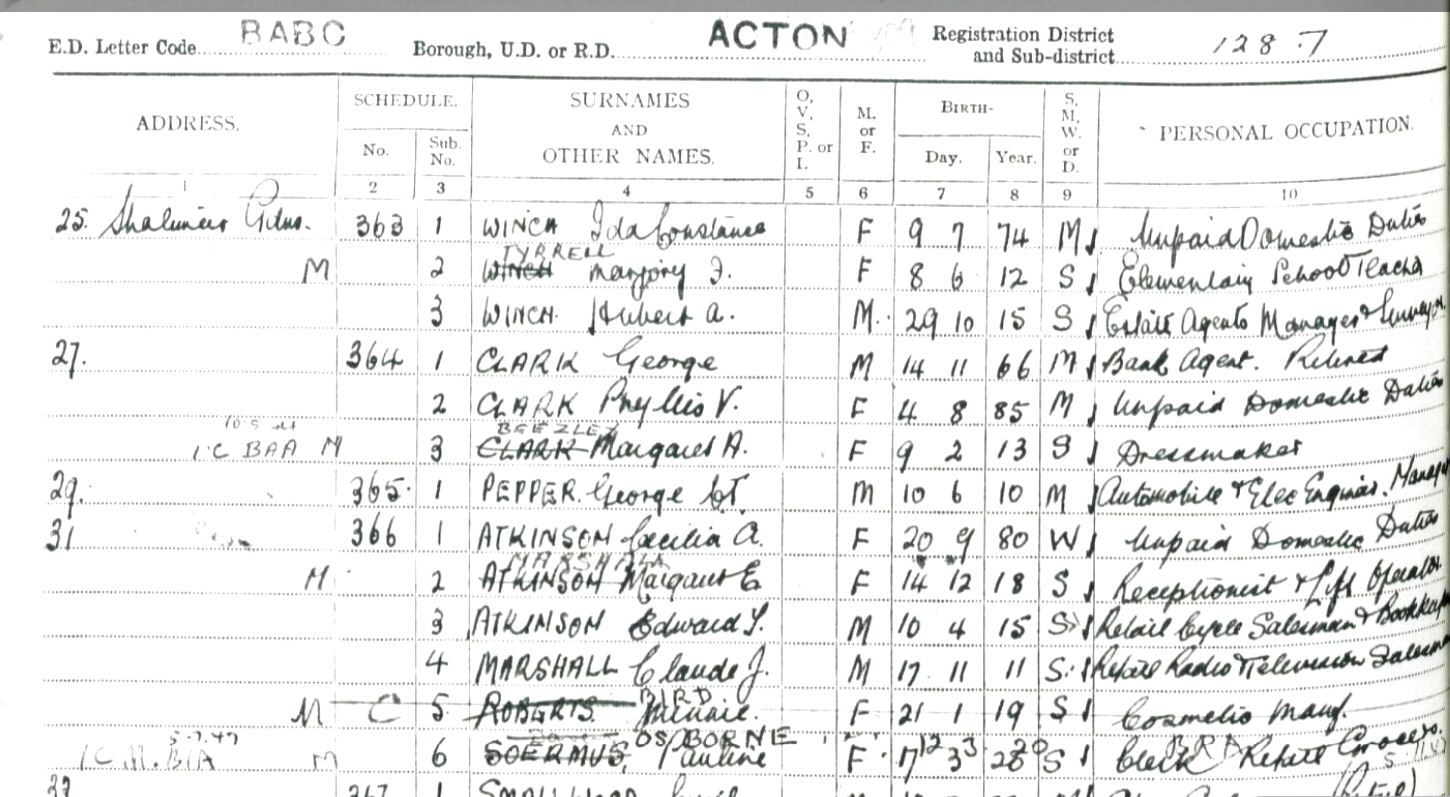 E.D. Letter Code BABC Borough, U.D. or R.D. ACTON Registration District and Sub-district 128.7
ADDRESS. SCHEDULE. No. Sub. No. SURNAMES AND OTHER NAMES. O, V, S, P. or I. M. or F. BIRTH- Day. Year. S, M, W. or D. PERSONAL OCCUPATION.
1 2 3 4 5 6 7 8 9 10
25. Shalimar Gdns. 363 1 WINCH Ida Constance F 9 7 74 M Unpaid Domestic Duties
TYRRELL
M 2 WINCH Marjory J. F 8 6 12 S Elementary School Teacher
3 WINCH. Hubert A. M. 29 10 15 S Estate Agents Manager & Surveyor
27. 364 1 CLARK George M 14 11 66 M Bank Agent. Retired
2 CLARK Phyllis V. F 4 8 85 M Unpaid Domestic Duties
BEEZLEY
1 C BAA M 3 CLARK Margaret A. F 9 2 13 S Dressmaker
29. 365 1 PEPPER George M 10 6 10 M Automobile & Elec Engineer. Manager
31 366 1 ATKINSON Cecilia A. F 20 9 80 W Unpaid Domestic Duties
MARSHALL
M 2 ATKINSON Margaret E. F 14 12 18 S Receptionist & Lift Operator
3 ATKINSON Edward M 10 4 15 S Retail Cycle Salesman & Bookkeeper
4 MARSHALL Claude J. M 17 11 11 S Retail Radio & Television Salesman
BIRD
M C 5 ROBERTS Minnie. F 21 1 19 S Cosmetic Manf.
5.7.47 OSBORNE
M 6 SOERMUS, Pauline F 17 12 S Clerk Retail Grocers.
367 1